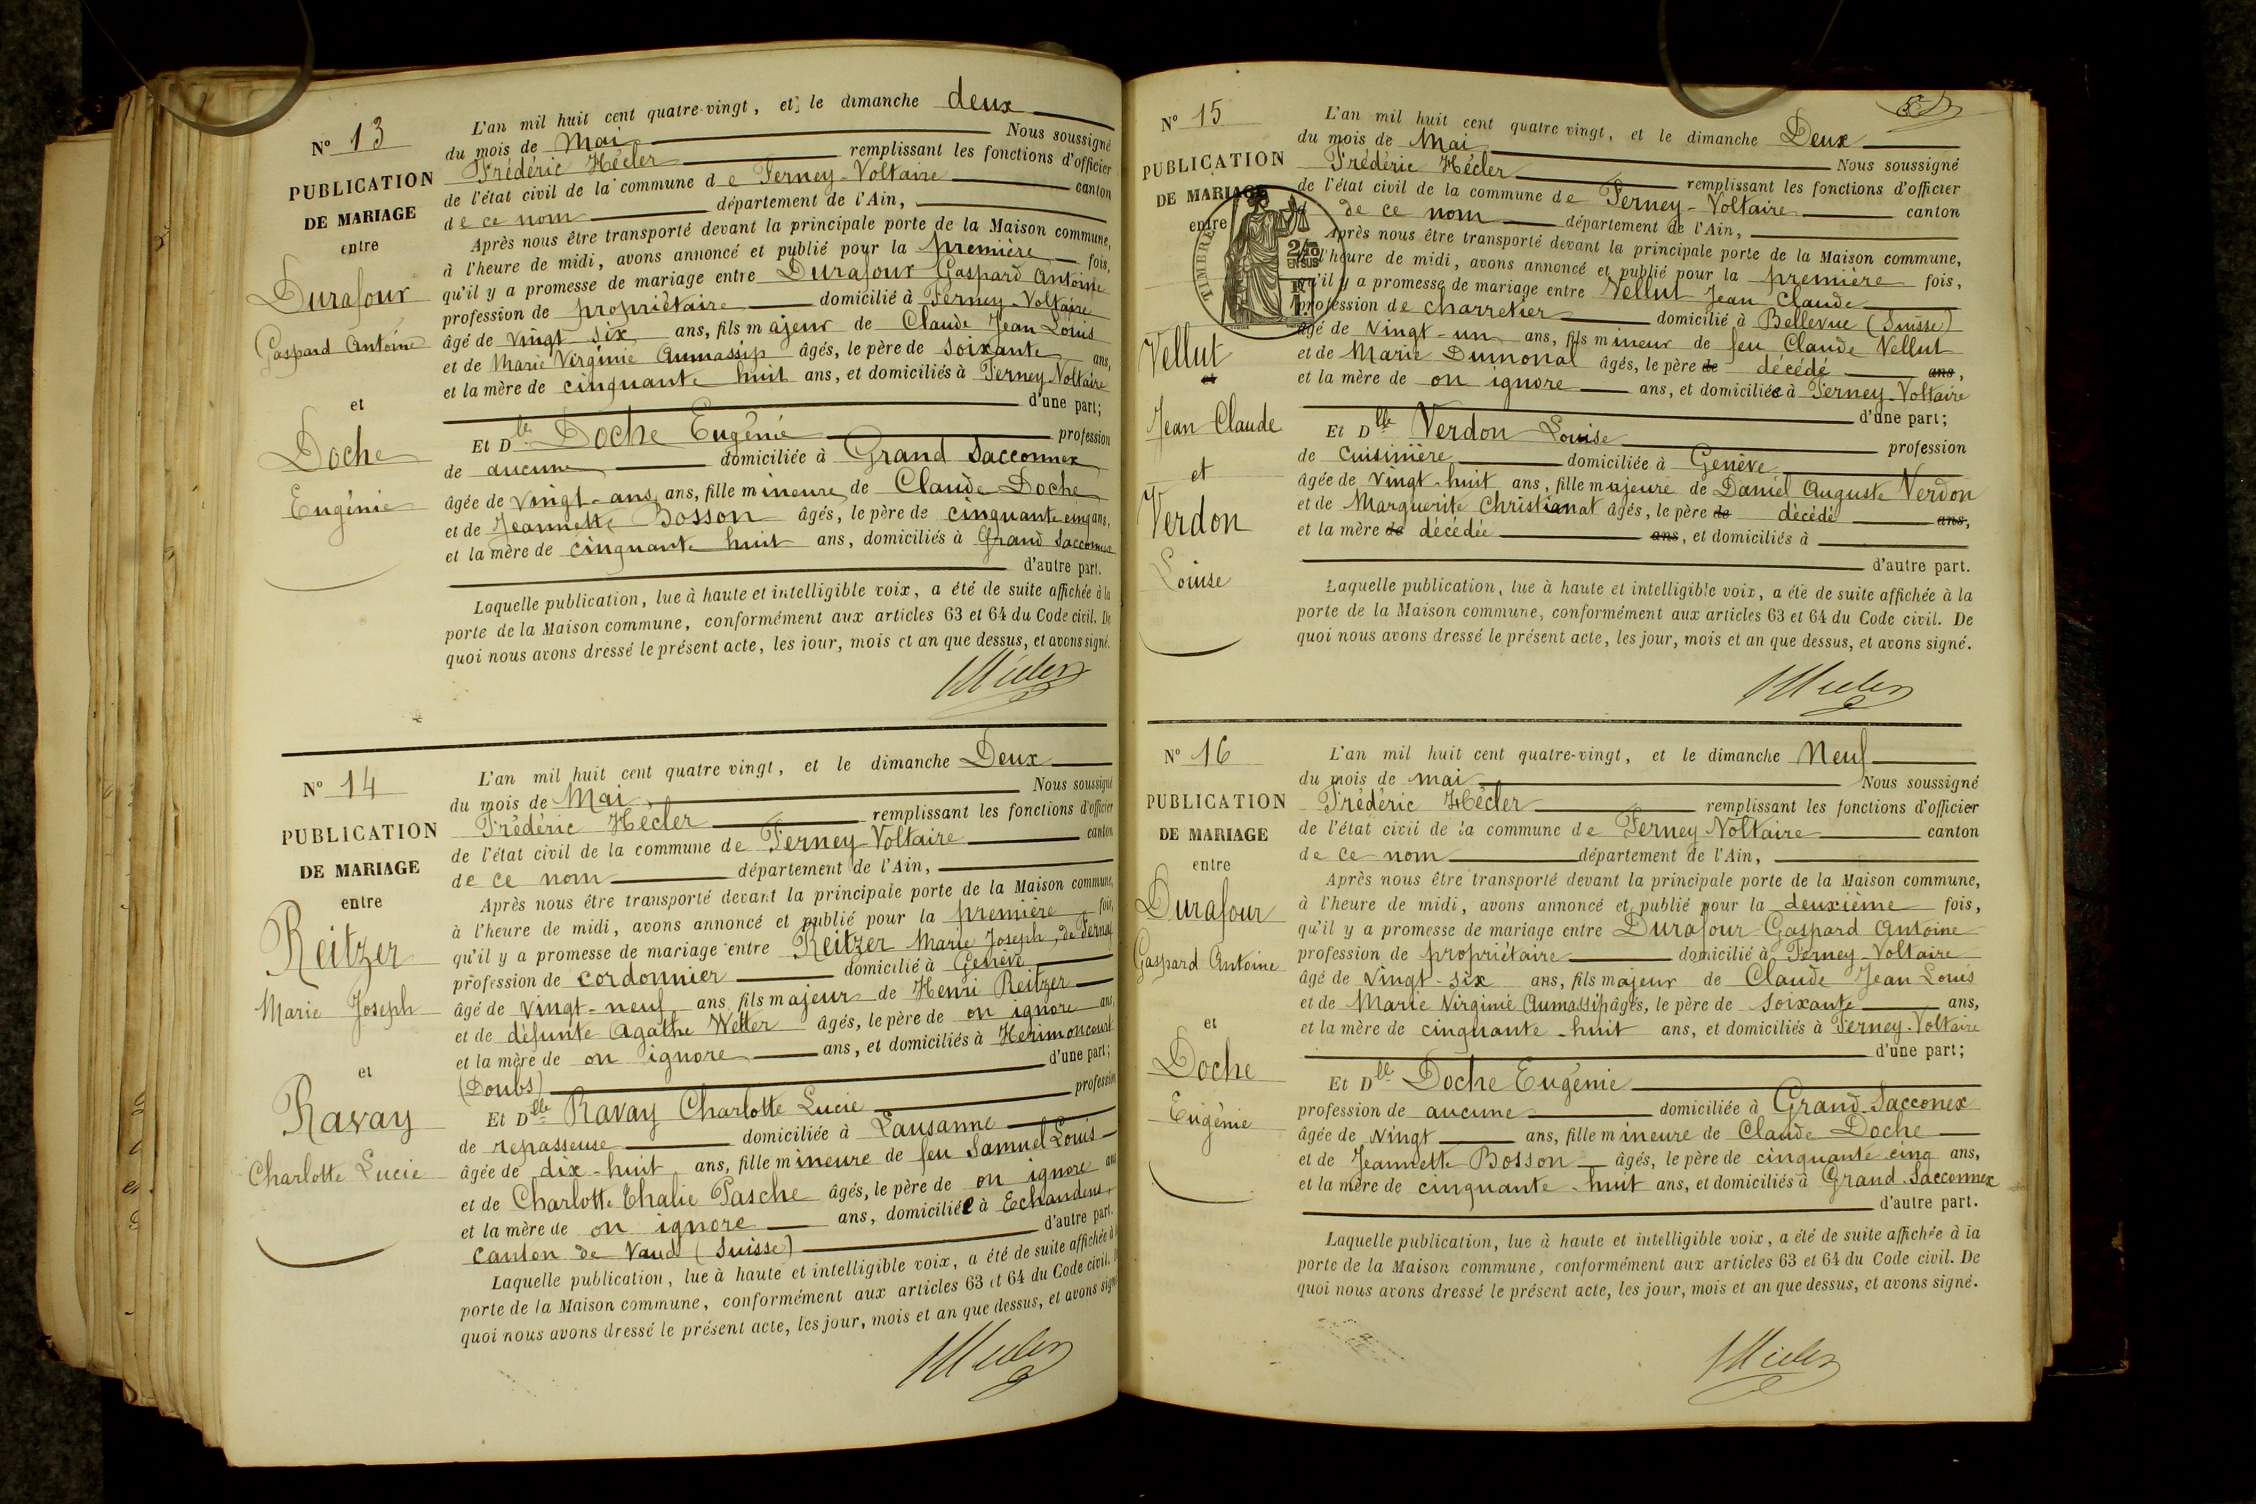 N° 13
PUBLICATION
DE MARIAGE
entre
Durafour
Gaspard Antoine
et
Doche
Eugénie
L'an mil huit cent quatre-vingt, et le dimanche deux
du mois de Mai Nous soussigné
Frédéric Hécler remplissant les fonctions d'officier
de l'état civil de la commune de Ferney-Voltaire canton
de ce nom département de l'Ain,
Après nous être transporté devant la principale porte de la Maison commune,
à l'heure de midi, avons annoncé et publié pour la première fois,
qu'il y a promesse de mariage entre Durafour Gaspard Antoine
profession de propriétaire domicilié à Ferney-Voltaire
âgé de vingt six ans, fils majeur de Claude Jean Louis
et de Marie Virginie Aumassip âgés, le père de soixante ans,
et la mère de cinquante huit ans, et domiciliés à Ferney Voltaire
d'une part;
Et Dlle Doche Eugénie profession
de aucune domiciliée à Grand Sacconnex
âgée de vingt-ans ans, fille mineure de Claude Doche
et de Jeannette Bosson âgés, le père de cinquante cinq ans,
et la mère de cinquante huit ans, domiciliés à Grand Sacconnex
d'autre part.
Laquelle publication, lue à haute et intelligible voix, a été de suite affichée à la
porte de la Maison commune, conformément aux articles 63 et 64 du Code civil. De
quoi nous avons dressé le présent acte, les jour, mois et an que dessus, et avons signé.
N° 14
PUBLICATION
DE MARIAGE
entre
Reitzer
Marie Joseph
et
Ravay
Charlotte Lucie
L'an mil huit cent quatre vingt, et le dimanche Deux
du mois de Mai, Nous soussigné
Frédéric Hécler remplissant les fonctions d'officier
de l'état civil de la commune de Ferney-Voltaire canton
de ce nom département de l'Ain,
Après nous être transporté devant la principale porte de la Maison commune,
à l'heure de midi, avons annoncé et publié pour la première fois,
qu'il y a promesse de mariage entre Reitzer Marie Joseph, de Ferney
profession de cordonnier domicilié à Genève
âgé de vingt-neuf ans fils majeur de Henri Reitzer
et de défunte Agathe Wetter âgés, le père de on ignore ans,
et la mère de on ignore ans, et domiciliés à Herimoncourt
(Doubs) d'une part;
Et Dlle Ravay Charlotte Lucie profession
de repasseuse domiciliée à Lausanne
âgée de dix-huit ans, fille mineure de feu Samuel Louis
et de Charlotte Thalie Pasche âgés, le père de on ignore ans
et la mère de on ignore ans, domiciliée à Echandens,
canton de Vaud (Suisse) d'autre part.
Laquelle publication, lue à haute et intelligible voix, a été de suite affichée à
porte de la Maison commune, conformément aux articles 63 et 64 du Code civil.
quoi nous avons dressé le présent acte, les jour, mois et an que dessus, et avons signé
N° 15
PUBLICATION
DE MARIAGE
entre
TIMBRE
2/10
EN SUS
Vellut
et
Jean Claude
et
Verdon
Louise
L'an mil huit cent quatre vingt, et le dimanche Deux
du mois de Mai Nous soussigné
Frédéric Hécler remplissant les fonctions d'officier
de l'état civil de la commune de Ferney-Voltaire canton
de ce nom département de l'Ain,
Après nous être transporté devant la principale porte de la Maison commune,
l'heure de midi, avons annoncé et publié pour la première fois,
qu'il y a promesse de mariage entre Vellut Jean Claude
profession de charretier domicilié à Bellevue (Suisse)
âgé de vingt-un ans, fils mineur de feu Claude Vellut
et de Marie Dumonal âgés, le père de décédé ans,
et la mère de on ignore ans, et domiciliée à Ferney-Voltaire
d'une part;
Et Dlle Verdon Louise profession
de cuisinière domiciliée à Genève
âgée de vingt-huit ans, fille majeure de Daniel Auguste Verdon
et de Marguerite Christianat âgés, le père de décédé ans,
et la mère de décédée ans, et domiciliés à
d'autre part.
Laquelle publication, lue à haute et intelligible voix, a été de suite affichée à la
porte de la Maison commune, conformément aux articles 63 et 64 du Code civil. De
quoi nous avons dressé le présent acte, les jour, mois et an que dessus, et avons signé.
N° 16
PUBLICATION
DE MARIAGE
entre
Durafour
Gaspard Antoine
et
Doche
Eugénie
L'an mil huit cent quatre-vingt, et le dimanche Neuf
du mois de mai Nous soussigné
Frédéric Hécler remplissant les fonctions d'officier
de l'état civil de la commune de Ferney Voltaire canton
de ce nom département de l'Ain,
Après nous être transporté devant la principale porte de la Maison commune,
à l'heure de midi, avons annoncé et publié pour la deuxième fois,
qu'il y a promesse de mariage entre Durafour Gaspard Antoine
profession de propriétaire domicilié à Ferney-Voltaire
âgé de vingt-six ans, fils majeur de Claude Jean Louis
et de Marie Virginie Aumassip âgés, le père de soixante ans,
et la mère de cinquante-huit ans, et domiciliés à Ferney-Voltaire
d'une part;
Et Dlle Doche Eugénie
profession de aucune domiciliée à Grand-Sacconex
âgée de vingt ans, fille mineure de Claude Doche
et de Jeannette Bosson âgés, le père de cinquante cinq ans,
et la mère de cinquante-huit ans, et domiciliés à Grand-Sacconnex
d'autre part.
Laquelle publication, lue à haute et intelligible voix, a été de suite affichée à la
porte de la Maison commune, conformément aux articles 63 et 64 du Code civil. De
quoi nous avons dressé le présent acte, les jour, mois et an que dessus, et avons signé.